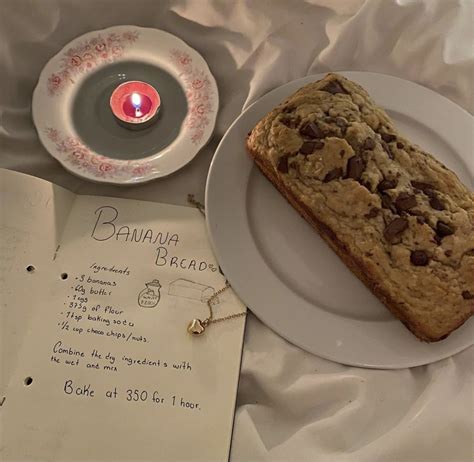 BANANA
BREAD
Ingredients
• 3 bananas
• 60g butter
• 1 egg
• 375g of flour
• 1 tsp baking soda
• 1/2 cup choco chips/nuts.
Combine the dry ingredients with
the wet and mix
Bake at 350 for 1 hour.